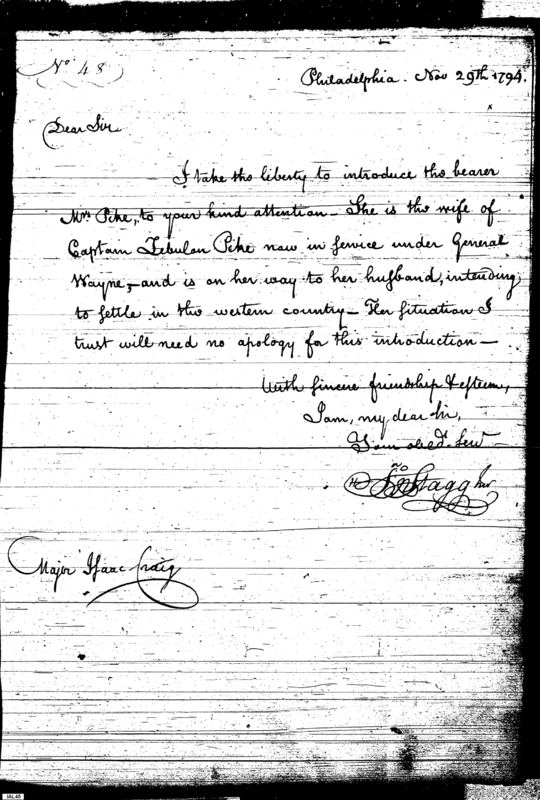 No. 48
Philadelphia. Nov 29th 1794.
Dear Sir
I take the liberty to introduce the bearer
Mrs. Pike, to your kind attention - She is the wife of
Captain Zebulon Pike now in service under General
Wayne, - and is on her way to her husband, intending
to settle in the western country - Her situation I
trust will need no apology for this introduction -
With sincere friendship & esteem,
I am, my dear Sir,
Your obed. Serv -
Jno Stagg Junr
Major Isaac Craig
IAL46